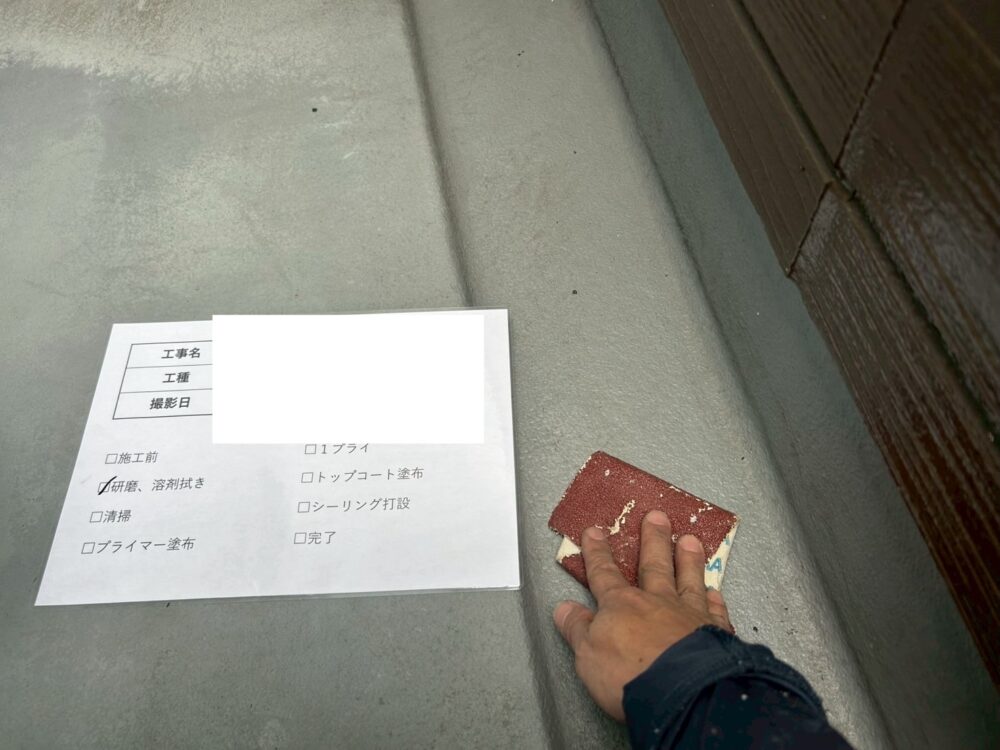 工事名
工種
撮影日
□施工前
□研磨、溶剤拭き
□清掃
□プライマー塗布
□1プライ
□トップコート塗布
□シーリング打設
□完了